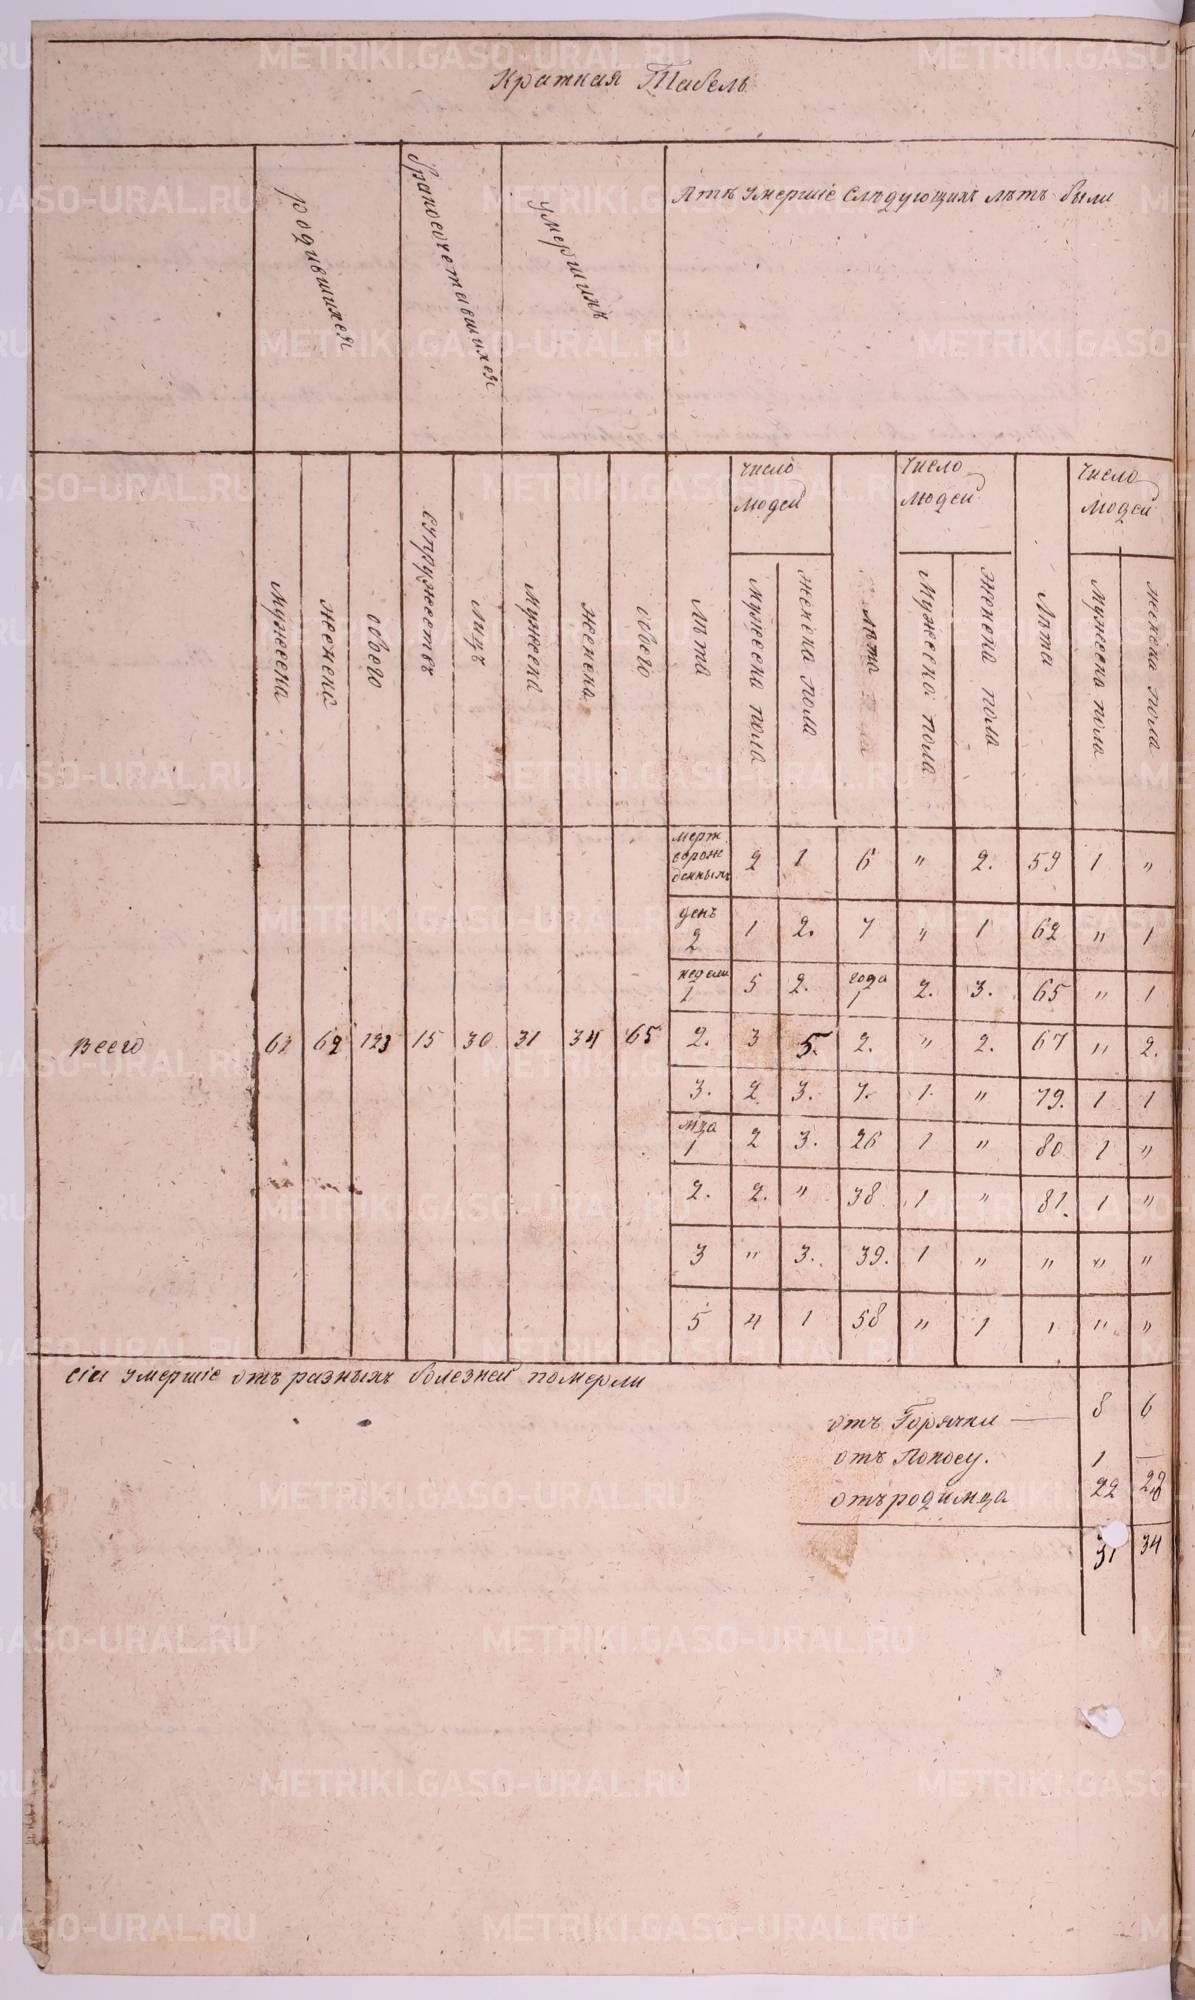 Краткая Табель
родившихся
бракосочетавшихся
умершихъ
Лѣтъ умершіе слѣдующихъ лѣтъ были
мужеска
женска
обоего
супружествъ
лицъ
мужеска
женска
обоего
лѣта
число людей
мужеска пола
женска пола
лѣта
число людей
мужеска пола
женска пола
лѣта
число людей
мужеска пола
женска пола
всего 61 62 123 15 30 31 34 65
мертворожденныхъ 2 1 6 " 2. 59 1 "
день 2 1 2. 7 " 1 62 " 1
недели 1 5 2. года 1 2. 3. 65 " 1
2. 3 5. 2. " 2. 67 " 2.
3. 2 3. 7. 1 " 79. 1 1
мца 1 2 3. 26 1 " 80 1 "
2. 2. " 38 1 " 81. 1 "
3 " 3. 39. 1 " " " "
5 4 1 58 " 1 " " "
сіи умершіе отъ разныхъ болезней померли
отъ Горячки — 8 6
отъ Поносу. 1 —
отъ родимца 22 28
31 34
METRIKI.GASO-URAL.RU